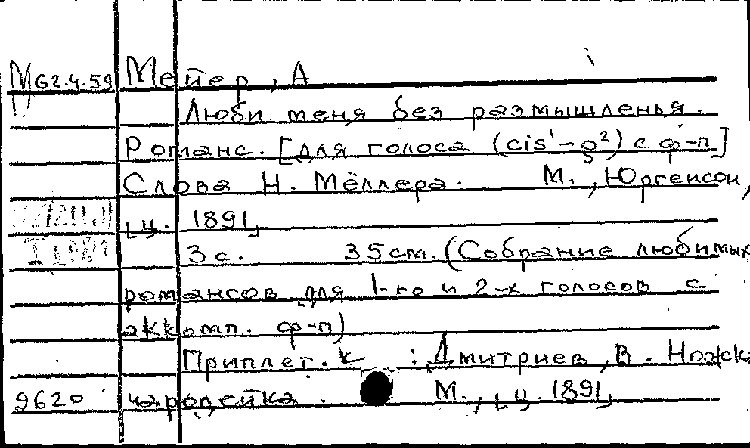 М62.4.59 Мейер, А
Люби меня без размышленья.
Романс. [Для голоса (cis¹-g²) с ф-п]
Слова Н. Мёллера. М., Юргенсон,
ц. 1891
3 с. 35 см. (Собрание любимых
романсов для 1-го и 2-х голосов с
аккомп. ф-п)
Приплет. к : Дмитриев, В. Ножка
9620 чародейка. М., ц. 1891